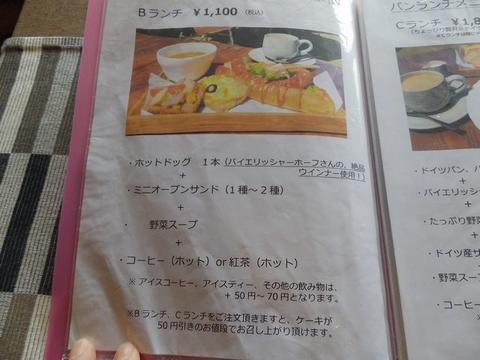 Bランチ ¥1,100 (税込)
・ホットドッグ 1本 (バイエリッシャーホーフさんの、絶品
ウインナー使用!)
+
・ミニオープンサンド (1種~2種)
+
・ 野菜スープ
+
・コーヒー (ホット) or 紅茶 (ホット)
※ アイスコーヒー、アイスティー、その他の飲み物は、
+ 50円~70円となります。
※Bランチ、Cランチをご注文頂きますと、ケーキが
50円引きのお値段でお召し上がり頂けます。
パンランチメニ
Cランチ ¥1,8
・ドイツパン、
+
・バイエリッシ
+
・たっぷり野菜
+
・ドイツ産サ
・野菜スープ
+
・コーヒー